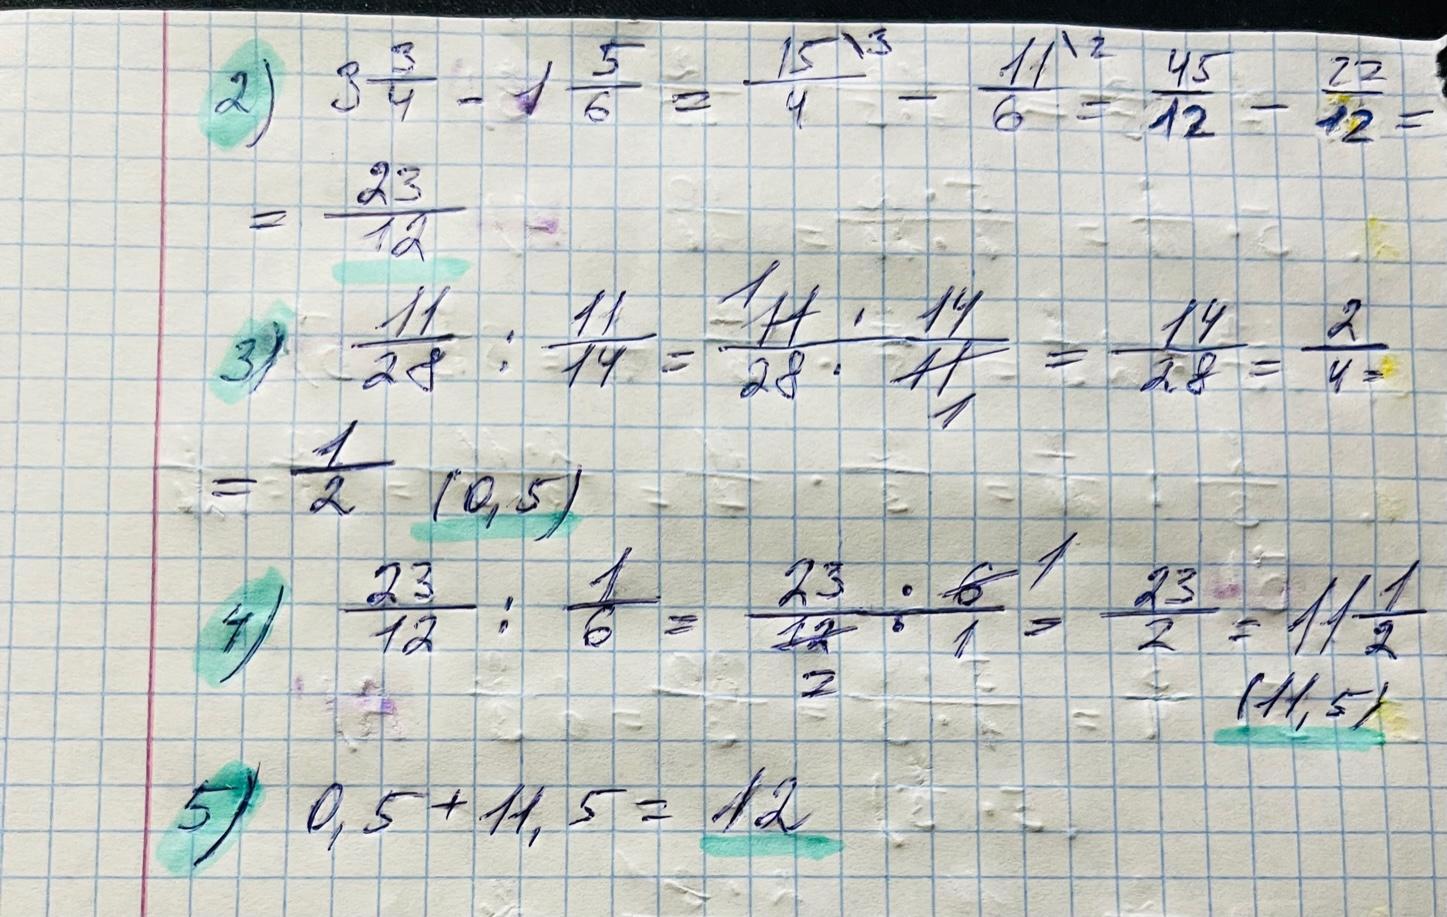 2) 3 3/4 - 1 5/6 = 15\3/4 - 11\2/6 = 45/12 - 22/12 =
= 23/12
3) 11/28 : 11/14 = 1 11 · 14/28 · 11 1 = 14/28 = 2/4 =
= 1/2 (0,5)
4) 23/12 : 1/6 = 23 · 6 1/12 · 1 2 = 23/2 = 11 1/2
(11,5)
5) 0,5 + 11,5 = 12